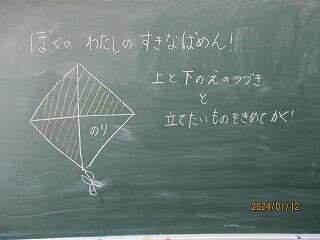 ぼくの わたしの すきなばめん!
上と下のえのつづき
と
立てたいものをきめてかく!
のり
2024/01/12